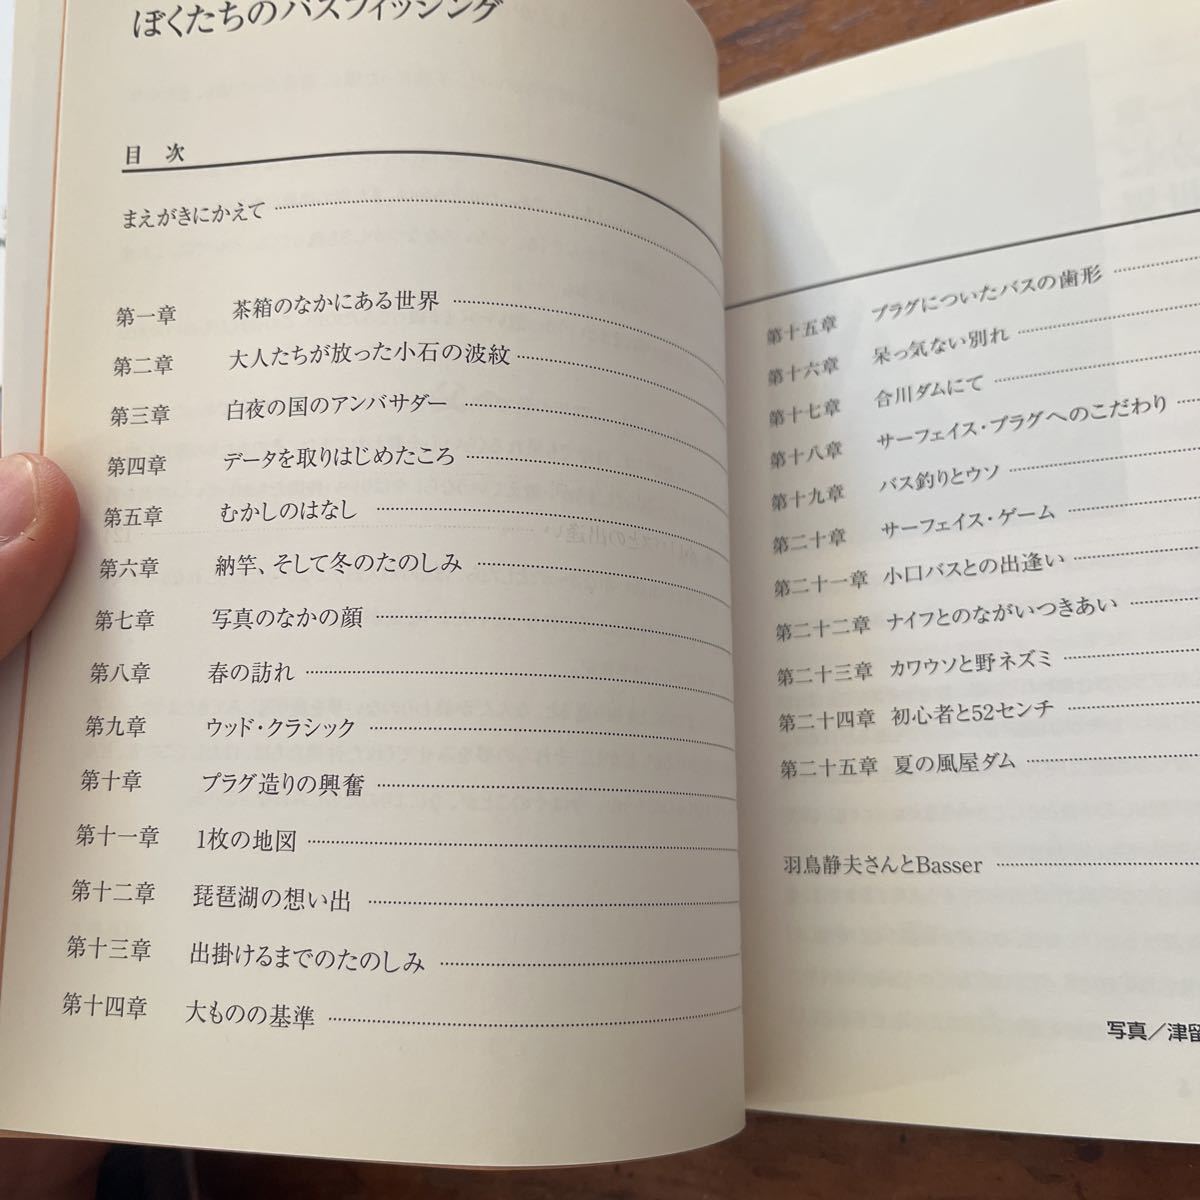 ぼくたちのバスフィッシング
目 次
まえがきにかえて
第一章 茶箱のなかにある世界
第二章 大人たちが放った小石の波紋
第三章 白夜の国のアンバサダー
第四章 データを取りはじめたころ
第五章 むかしのはなし
第六章 納竿、そして冬のたのしみ
第七章 写真のなかの顔
第八章 春の訪れ
第九章 ウッド・クラシック
第十章 プラグ造りの興奮
第十一章 1枚の地図
第十二章 琵琶湖の想い出
第十三章 出掛けるまでのたのしみ
第十四章 大ものの基準
第十五章 プラグについたバスの歯形
第十六章 呆っ気ない別れ
第十七章 合川ダムにて
第十八章 サーフェイス・プラグへのこだわり
第十九章 バス釣りとウソ
第二十章 サーフェイス・ゲーム
第二十一章 小口バスとの出逢い
第二十二章 ナイフとのながいつきあい
第二十三章 カワウソと野ネズミ
第二十四章 初心者と52センチ
第二十五章 夏の風屋ダム
羽鳥静夫さんとBasser
写真／津留